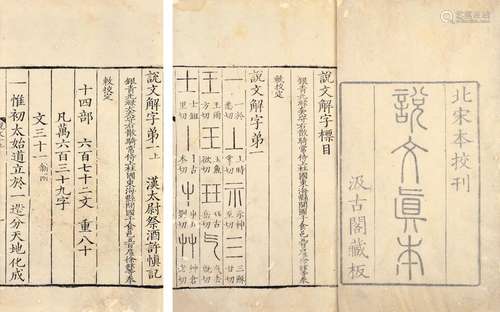 北宋本校刊
說文真本
汲古閣藏板
說文解字標目
銀青光祿大夫守右散騎常侍上柱國東海縣開國子食邑五百戶臣徐鉉等奉
敕校定
說文解字第一
說文解字弟一上 漢太尉祭酒許慎記
銀青光祿大夫守右散騎常侍上柱國東海縣開國子食邑五百戶臣徐鉉等奉
敕校定
十四部 六百七十二文 重八十
凡萬六百三十九字
文三十一新附
一惟初太始道立於一造分天地化成